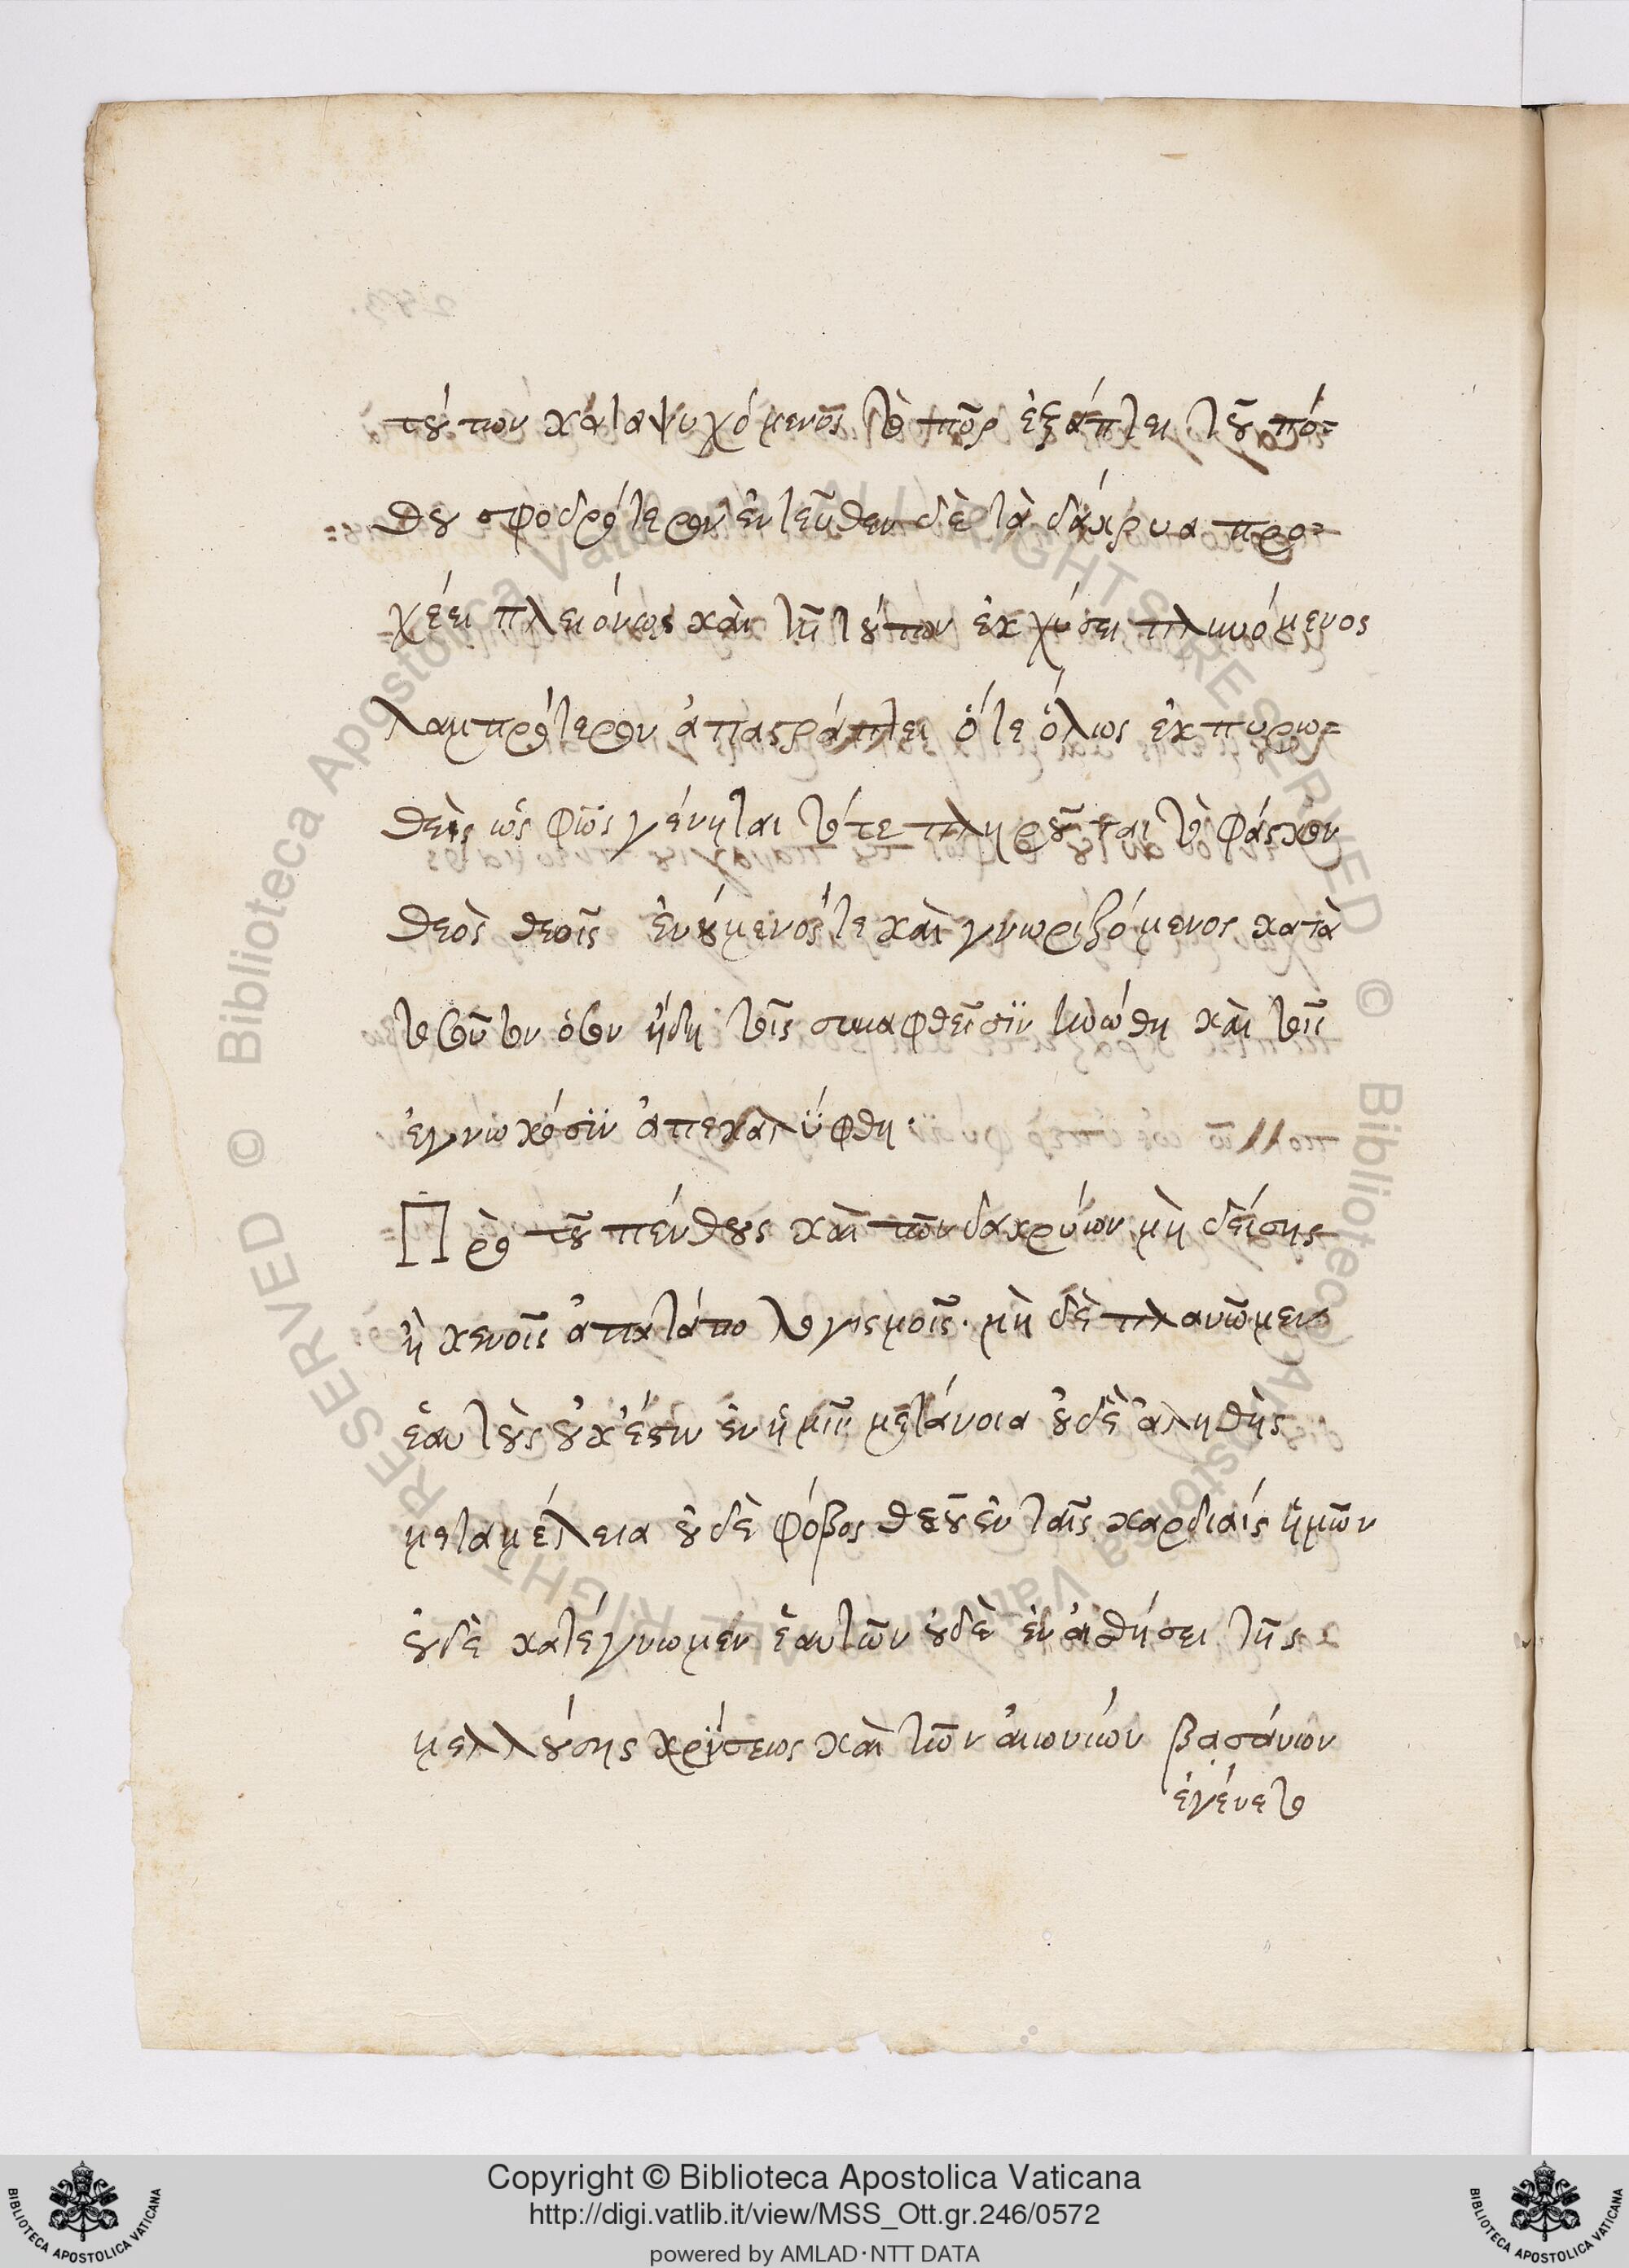 τούτων καταψυχόμενος τὸ πῦρ ἐξάπτει τοῦ πό=
θου σφοδρότερον ἐντεῦθεν δὲ τὰ δάκρυα προ=
χέει πλειόνως καὶ τῆ τούτων ἐκχύσει πλυνόμενος
λαμπρότερον ἀπαστράπτει ὅτε ὅλως ἐκπυρω=
θεὶς ὡς φῶς γένηται τότε πληροῦται τὸ φάσκον
θεὸς θεοῖς ἑνούμενός τε καὶ γνωριζόμενος κατὰ
τοσοῦτον ὅσον ἤδη τοῖς συναφθεῖσϊν ἡνώθη καὶ τοῖς
ἐγνωκόσϊν ἀπεκαλύφθη:
Πρὸ τοῦ πένθους καὶ τῶν δακρύων μὴ δείσης
ἢ κενοῖς ἀπατάτω λογισμοῖς· μὴ δὲ πλανῶμεν
ἑαυτοὺς οὐκ ἔστιν ἐν ἡμῖν μετάνοια οὐδὲ ἀληθὴς
μεταμέλεια οὐδὲ φόβος θεοῦ ἐν ταῖς καρδίαις ἡμῶν
οὐδὲ κατέγνωμεν ἑαυτῶν οὐδὲ ἐν αἰσθήσει τῆς
μελλούσης κρίσεως καὶ τῶν αἰωνίων βασάνων
ἐγένετο
Copyright © Biblioteca Apostolica Vaticana
http://digi.vatlib.it/view/MSS_Ott.gr.246/0572
powered by AMLAD·NTT DATA
BIBLIOTECA APOSTOLICA VATICANA
BIBLIOTECA APOSTOLICA VATICANA